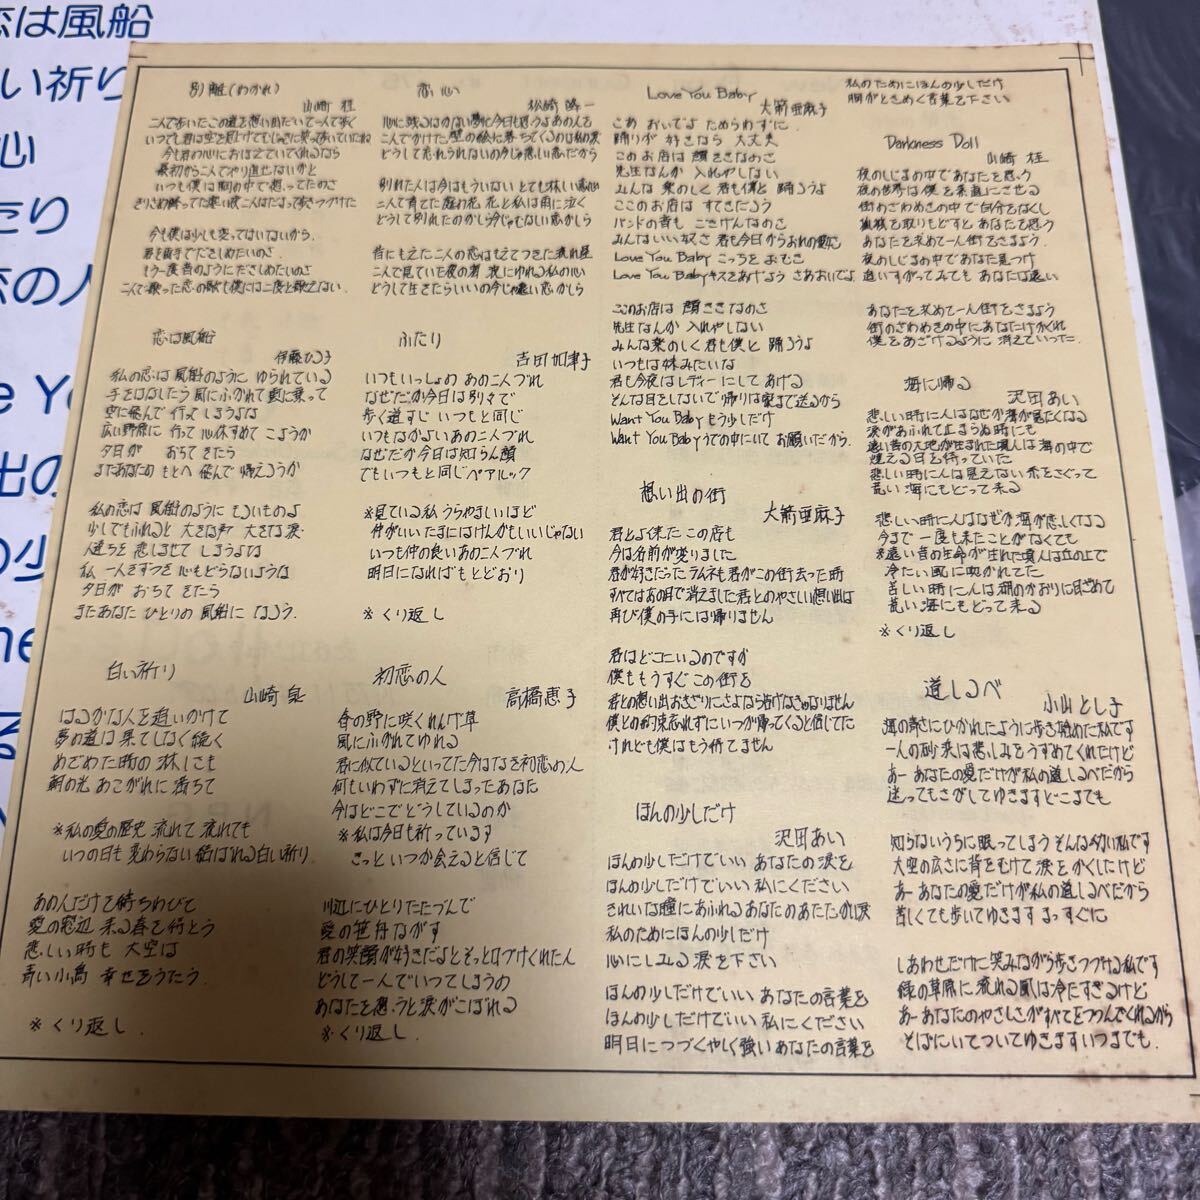 恋は風船
い祈り
心
たり
恋の人
e Yo
出の
の少
ne
別離(わかれ)
山崎 桂
二人で歩いたこの道を想い出たいて一人で歩く
今も君の心におぼえていてくれるなら
最初から二人でやり直せないかと
いつも僕は胸の中で想ってたのさ
今も僕は少しも変ってはいないから
もう一度昔のようにだきしめたいのさ
二人で歌った恋の歌も僕には二度と歌えない
恋は風船
伊藤ひろ子
私の恋は 風船のように ゆられている
手をはなしたら 風にふかれて 雲に乗って
空に飛んで 行って しまうような
広い野原に 行って 心休すめて こようか
夕日が おちて きたら
またあなたの もとへ 飛んで 帰えろうか
私の恋は 風船のように もろいものよ
少しでもふれると 大きな声 大きな涙
人達ちを 悲しませて しまうよな
私 一人をすつを 心もどらないような
夕日が おちて きたら
またあなた ひとりの 風船に なろう.
白い祈り
山崎 泉
はるかな人を追いかけて
夢の道は 果てしなく続く
めざめた時の 淋しさも
朝の光 あこがれに 満ちて
※私の愛の歴史 流れて 流れても
いつの日も 変わらない 結ばれる白い祈り
あの人だけを待ちわびて
愛の窓辺 来る春を待とう
悲しい時も 大空は
青い小鳥 幸せをうたう
※くり返し.
恋心
松崎 時一
別れた人は今はもういない とても淋しい恋心
二人で育てた庭の花 花と私は雨に泣く
どうして別れたのかしら今じゃない恋かしら
昔にもえた二人の恋はもえてつきた流れ星
二人で見ていた夜の海 波にゆれる私の心
どうして生きたらいいの今じゃ遠い恋かしら
ふたり
吉田 加津子
いつもいっしょの あの二人づれ
なぜだか今日は 別々で
歩く道すじ いつもと同じ
いつもなかよい あの二人づれ
なぜだか 今日は 知らん顔
でもいつもと同じ ペアルック
※見ている私 うらやましいほど
仲がいい たまにはけんかもいいじゃない
いつも仲の良い あの二人づれ
明日になれば もとどおり
※くり返し
初恋の人
高橋恵子
春の野に咲くれんげ草
風にふかれてゆれる
君に似ているといってた今はなき初恋の人
何もいわずに消えてしまったあなた
今はどこでどうしているのか
※私は今日も祈っています
きっと いつか会えると信じて
川辺にひとりたたづんで
愛の笹舟ながす
君の笑顔が好きだよとそっと口づけくれた人
どうして一人でいってしまうの
あなたを想うと涙がこぼれる
※くり返し.
Love You Baby
大箭亜麻子
さあ おいでよ ためらわずに.
踊りが 好きなら 大丈夫
このお店は 顔ききなのさ
先生なんか 入れやしない
みんな 楽のしく 君も僕と 踊ろうよ
ここのお店は すてきだろう
バンドの音も ごきげんなのさ
みんないい奴さ 君も今日からおれの恋に
Love You Baby こっちを おむき
Love You Baby キスをあげよう さあおいでよ
ここのお店は 顔ききなのさ
先生なんか 入れやしない
みんな 楽のしく 君も僕と 踊ろうよ
いつもは妹みたいな
君も今夜はレディーにして あげる
そんな目をしないで帰りは家まで送るから
Want You Baby もう少しだけ
Want You Baby うでの中にいて お願いだから.
想い出の街
大箭亜麻子
君とよく来た この店も
今は名前が変りました
君が好きだったラムネも君がこの街去った時
すべてはあの日で消えました君とのやさしい想い出は
再び僕の手には帰りません
君はどこにいるのですか
僕ももうすぐ この街を
君との想い出おきざりにさよなら告げなきゃなりません
僕との約束忘れずにいつか帰ってくると信じてた
けれども僕はもう待てません
ほんの少しだけ
沢田あい
ほんの少しだけでいい あなたの涙を
ほんの少しだけでいい 私にください
きれいな瞳にあふれるあなたのあたたかい涙
私のためにほんの少しだけ
心にしみる涙を下さい
ほんの少しだけでいい あなたの言葉を
ほんの少しだけでいい 私にください
明日につづくやしく強い あなたの言葉を
私のためにほんの少しだけ
胸がときめく言葉を下さい
Darkness Doll
山崎 桂
夜のしじまの中であなたを思う
夜の世界は僕を素直にさせる
街のざわめきの中で自分をなくし
孤独を取りもどすと あなたを思う
あなたを求めて一人街をさまよう
夜のしじまの中であなた見つけ
追いすがってみても あなたは遠い
あなたを求めて一人街をさまよう
街のざわめきの中にあなたはかくれ
僕をあざけるように 消えていった.
海に帰る
沢田 あい
悲しい時に人はなぜか海が見たくなる
涙があふれて止まらぬ時にも
遠い昔の大地が生まれた頃人は海の中で
燃える日を待っていた
悲しい時に人は見えない糸をさぐって
荒い海にもどって来る
悲しい時に人はなぜか海が恋しくなる
今まで一度も来たことがなくても
※遠い昔の生命が生れた頃人は丘の上で
冷たい風に吹かれてた
苦しい時に人は潮のかおりに目ざめて
荒い海にもどって来る
※くり返し
道しるべ
小山とし子
海の青さにひかれたように歩き始めた私です
一人の砂浜は悲しみをうすめてくれたけど
あー あなたの愛だけが私の道しるべだから
迷ってもさがしてゆきますどこまでも
知らないうちに眠ってしまう そんな幼い私です
大空の広さに背をむけて涙をかくしたけど
あー あなたの愛だけが私の道しるべだから
苦しくても歩いてゆきます まっすぐに
しあわせだけに笑みながら歩きつづける私です
緑の草原に流れる風は冷たすぎるけど
あー あなたのやさしさがすべてをつつんでくれるから
そばにいてついてゆきますいつまでも.